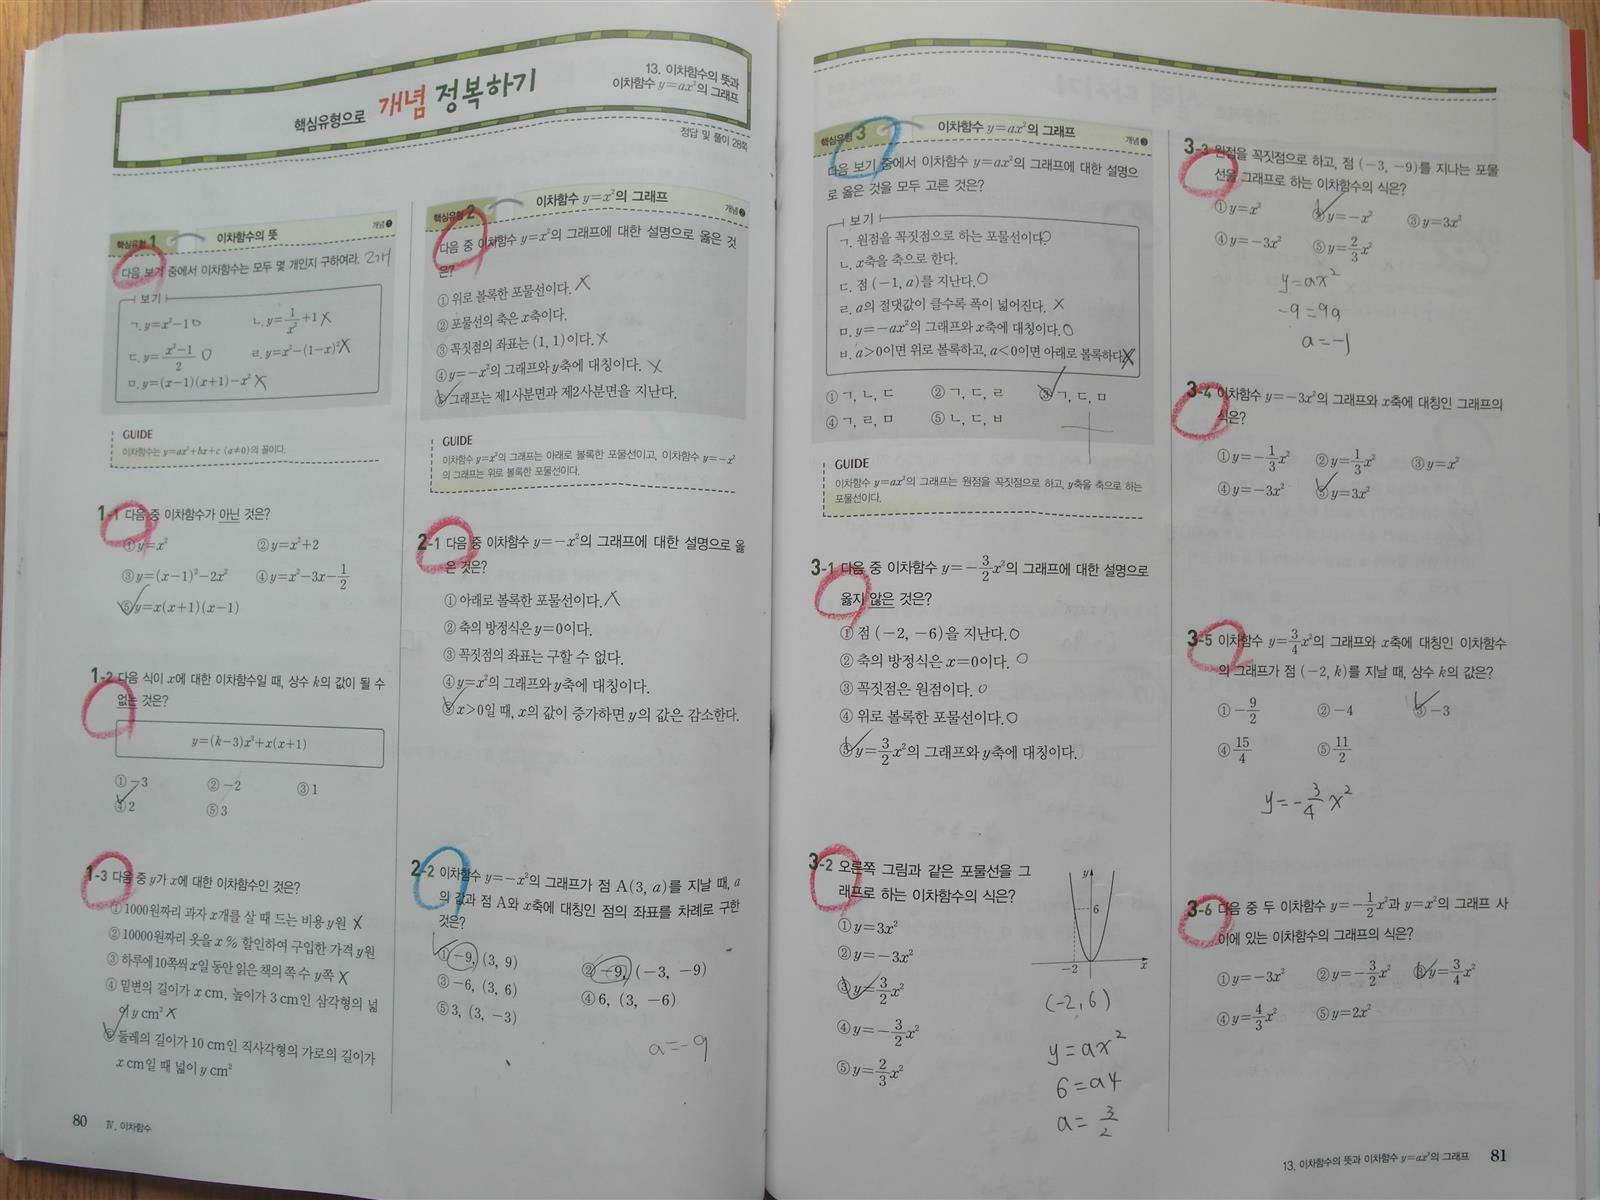 핵심유형으로 개념 정복하기
13. 이차함수의 뜻과
이차함수 y=ax²의 그래프
정답 및 풀이 28쪽
핵심유형 1 이차함수의 뜻 개념❶
다음 보기 중에서 이차함수는 모두 몇 개인지 구하여라. 2개
보기
ㄱ. y=x²-1 ○ ㄴ. y=1/x²+1 X
ㄷ. y=(x²-1)/2 ○ ㄹ. y=x²-(1-x)² X
ㅁ. y=(x-1)(x+1)-x² X
GUIDE
이차함수는 y=ax²+bx+c (a≠0)의 꼴이다.
1-1 다음 중 이차함수가 아닌 것은?
① y=x² ② y=x²+2
③ y=(x-1)²-2x² ④ y=x²-3x-1/2
⑤ y=x(x+1)(x-1)
1-2 다음 식이 x에 대한 이차함수일 때, 상수 k의 값이 될 수
없는 것은?
y=(k-3)x²+x(x+1)
① -3 ② -2 ③ 1
④ 2 ⑤ 3
1-3 다음 중 y가 x에 대한 이차함수인 것은?
① 1000원짜리 과자 x개를 살 때 드는 비용 y원 X
② 10000원짜리 옷을 x % 할인하여 구입한 가격 y원
③ 하루에 10쪽씩 x일 동안 읽은 책의 쪽 수 y쪽 X
④ 밑변의 길이가 x cm, 높이가 3 cm인 삼각형의 넓
이 y cm² X
⑤ 둘레의 길이가 10 cm인 직사각형의 가로의 길이가
x cm일 때 넓이 y cm²
80 Ⅳ. 이차함수
핵심유형 2 이차함수 y=x²의 그래프 개념❷
다음 중 이차함수 y=x²의 그래프에 대한 설명으로 옳은 것
은?
① 위로 볼록한 포물선이다. X
② 포물선의 축은 x축이다.
③ 꼭짓점의 좌표는 (1, 1)이다. X
④ y=-x²의 그래프와 y축에 대칭이다. X
⑤ 그래프는 제1사분면과 제2사분면을 지난다.
GUIDE
이차함수 y=x²의 그래프는 아래로 볼록한 포물선이고, 이차함수 y=-x²
의 그래프는 위로 볼록한 포물선이다.
2-1 다음 중 이차함수 y=-x²의 그래프에 대한 설명으로 옳
은 것은?
① 아래로 볼록한 포물선이다. X
② 축의 방정식은 y=0이다.
③ 꼭짓점의 좌표는 구할 수 없다.
④ y=x²의 그래프와 y축에 대칭이다.
⑤ x>0일 때, x의 값이 증가하면 y의 값은 감소한다.
2-2 이차함수 y=-x²의 그래프가 점 A(3, a)를 지날 때, a
의 값과 점 A와 x축에 대칭인 점의 좌표를 차례로 구한
것은?
① -9, (3, 9) ② -9, (-3, -9)
③ -6, (3, 6) ④ 6, (3, -6)
⑤ 3, (3, -3)
a=-9
핵심유형 3 이차함수 y=ax²의 그래프 개념❸
다음 보기 중에서 이차함수 y=ax²의 그래프에 대한 설명으
로 옳은 것을 모두 고른 것은?
보기
ㄱ. 원점을 꼭짓점으로 하는 포물선이다. ○
ㄴ. x축을 축으로 한다.
ㄷ. 점 (-1, a)를 지난다. ○
ㄹ. a의 절댓값이 클수록 폭이 넓어진다. X
ㅁ. y=-ax²의 그래프와 x축에 대칭이다. ○
ㅂ. a>0이면 위로 볼록하고, a<0이면 아래로 볼록하다. X
① ㄱ, ㄴ, ㄷ ② ㄱ, ㄷ, ㄹ ③ ㄱ, ㄷ, ㅁ
④ ㄱ, ㄹ, ㅁ ⑤ ㄴ, ㄷ, ㅂ
GUIDE
이차함수 y=ax²의 그래프는 원점을 꼭짓점으로 하고, y축을 축으로 하는
포물선이다.
3-1 다음 중 이차함수 y=-3/2x²의 그래프에 대한 설명으로
옳지 않은 것은?
① 점 (-2, -6)을 지난다. ○
② 축의 방정식은 x=0이다. ○
③ 꼭짓점은 원점이다. ○
④ 위로 볼록한 포물선이다. ○
⑤ y=3/2x²의 그래프와 y축에 대칭이다.
3-2 오른쪽 그림과 같은 포물선을 그
래프로 하는 이차함수의 식은?
① y=3x²
② y=-3x²
③ y=3/2x²
④ y=-3/2x²
⑤ y=2/3x²
y
6
-2
x
(-2, 6)
y=ax²
6=a4
a=3/2
3-3 원점을 꼭짓점으로 하고, 점 (-3, -9)를 지나는 포물
선을 그래프로 하는 이차함수의 식은?
① y=x² ② y=-x² ③ y=3x²
④ y=-3x² ⑤ y=2/3x²
y=ax²
-9=9a
a=-1
3-4 이차함수 y=-3x²의 그래프와 x축에 대칭인 그래프의
식은?
① y=-1/3x² ② y=1/3x² ③ y=x²
④ y=-3x² ⑤ y=3x²
3-5 이차함수 y=3/4x²의 그래프와 x축에 대칭인 이차함수
의 그래프가 점 (-2, k)를 지날 때, 상수 k의 값은?
① -9/2 ② -4 ③ -3
④ 15/4 ⑤ 11/2
y=-3/4x²
3-6 다음 중 두 이차함수 y=-1/2x²과 y=x²의 그래프 사
이에 있는 이차함수의 그래프의 식은?
① y=-3x² ② y=-3/2x² ③ y=3/4x²
④ y=4/3x² ⑤ y=2x²
13. 이차함수의 뜻과 이차함수 y=ax²의 그래프 81